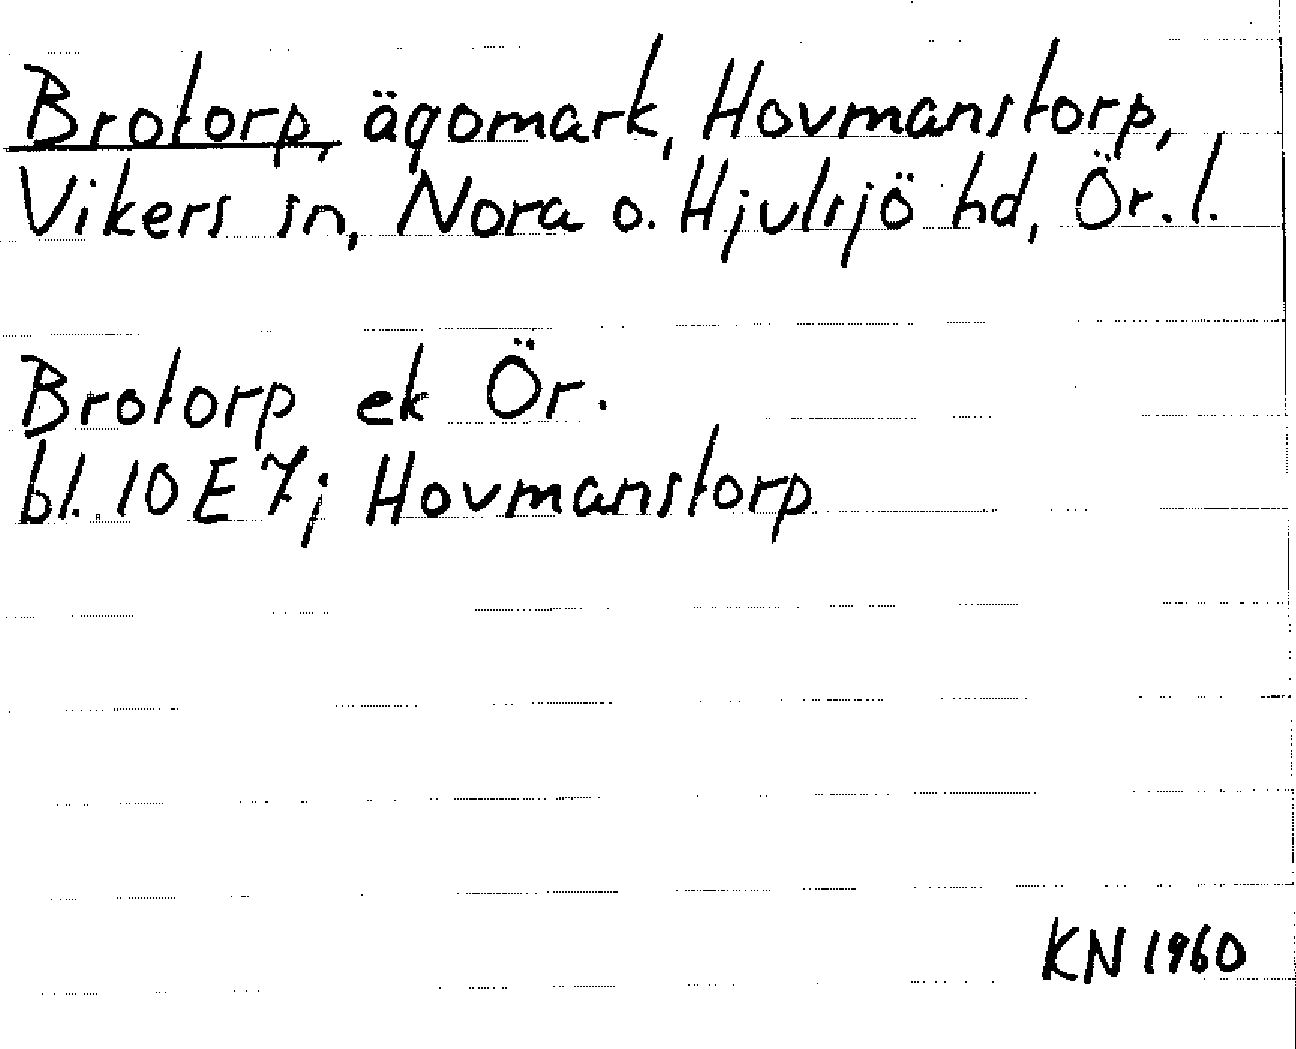 Brotorp, ägomark, Hovmanstorp,
Vikers sn, Nora o. Hjulsjö hd, Ör. l.
Brotorp ek Ör.
bl. 10 E 7j Hovmanstorp
KN 1960